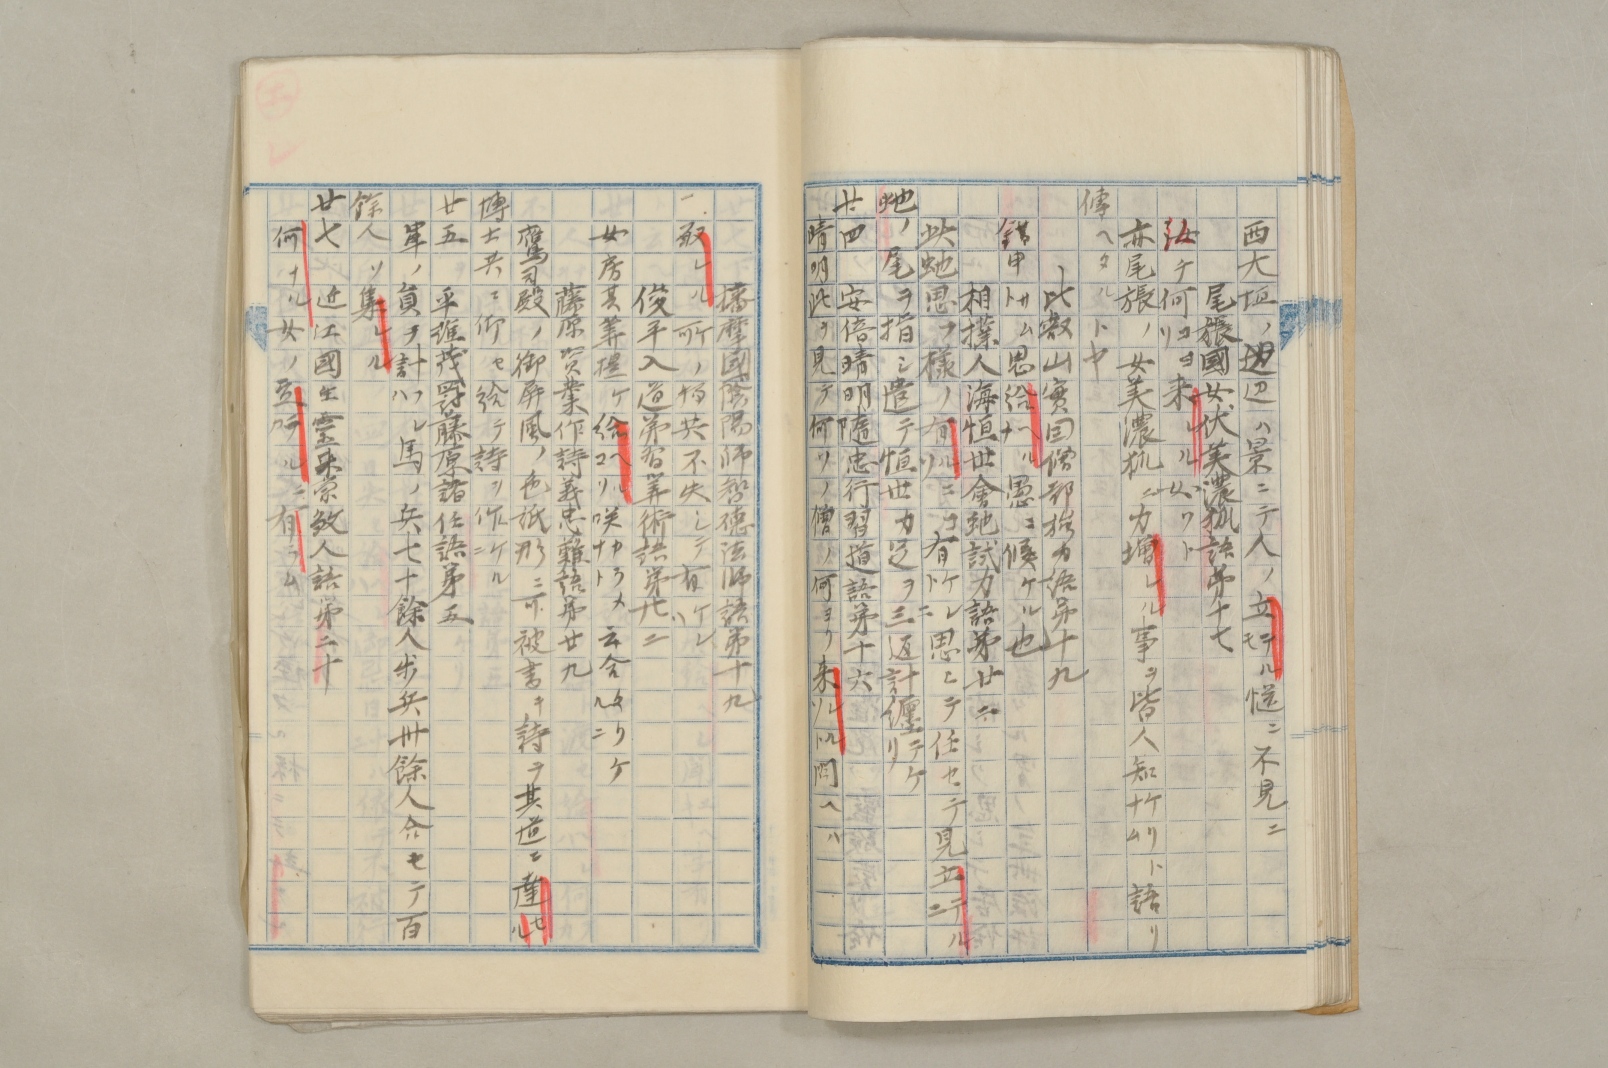 西大垣ノ辺ハ景ニテ人ノ立テルモ慥ニ不見ニ
尾張國女伏美濃狐語第十七
汝ヂ何コヨリ来ル女ゾト
亦尾張ノ女美濃狐ニ力増レル事ヲ皆人知ナムケリト語リ
傳ヘタルトヤ
比叡山實因僧都強力語第十九
錯甲トサム思給ヘル愚ニ候ケル也
相撲人海恒世會蛇試力語第廿二
此蛇思フ様ノ有ルニコ有ケレト思ヒテ任セテ見立テルニ
蛇ノ尾ヲ指シ遣テ恒世カ足ヲ三返計纒テケリ
廿四 安倍晴明隨忠行習道語第十六
晴明此ヲ見テ何ゾノ僧ノ何ヨリ来ルゾト問ヘハ
播摩國陰陽師智徳法師語第十九
取レル所ノ物共不失シテ有ケレハ
俊平入道弟習筭術語第廿二
女房共筭提ケ給ヘルコソ咲カラメナト云合タリケルニ
藤原資業作詩義忠難語第廿九
鷹司殿ノ御屏風ノ色紙形ニ可被書キ詩ヲ其道ニ達セル
博士共ニ仰セ給テ詩ヲ作ケルニ
廿五 平維茂罸藤原諸任語第五
軍ノ員ヲ計フレハ馬ノ兵七十餘人歩兵卅餘人合セテ百
餘人ソ集レル
廿七 近江國生霊来京殺人語第二十
何ナル女ノ立テルニ有ラム